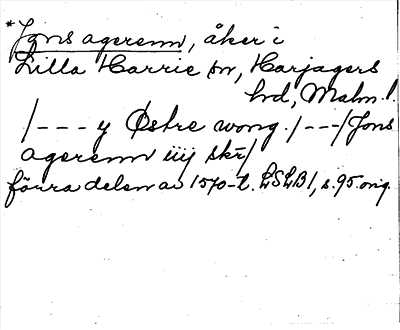 *Jons agerenn, åker i
Lilla Harrie sn, Harjagers
hd, Malm.l.
/--- y Østre wong. /---/ Jons
agerenn iiij skr/
förra delen av 1570-t. LSLB1, s. 95. orig.